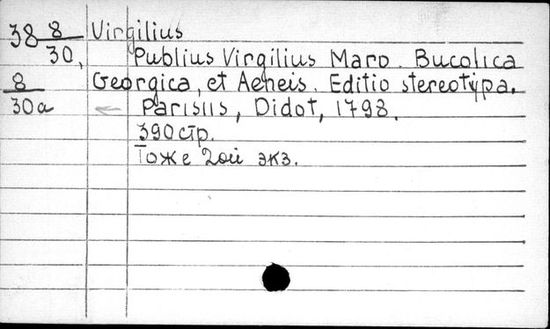 38 8/30, Virgilius
Publius Virgilius Maro. Bucolica
8/30a Georgica, et Aeneis. Editio stereotypa.
← Parisiis, Didot, 1798.
390 стр.
Тоже 2ой экз.